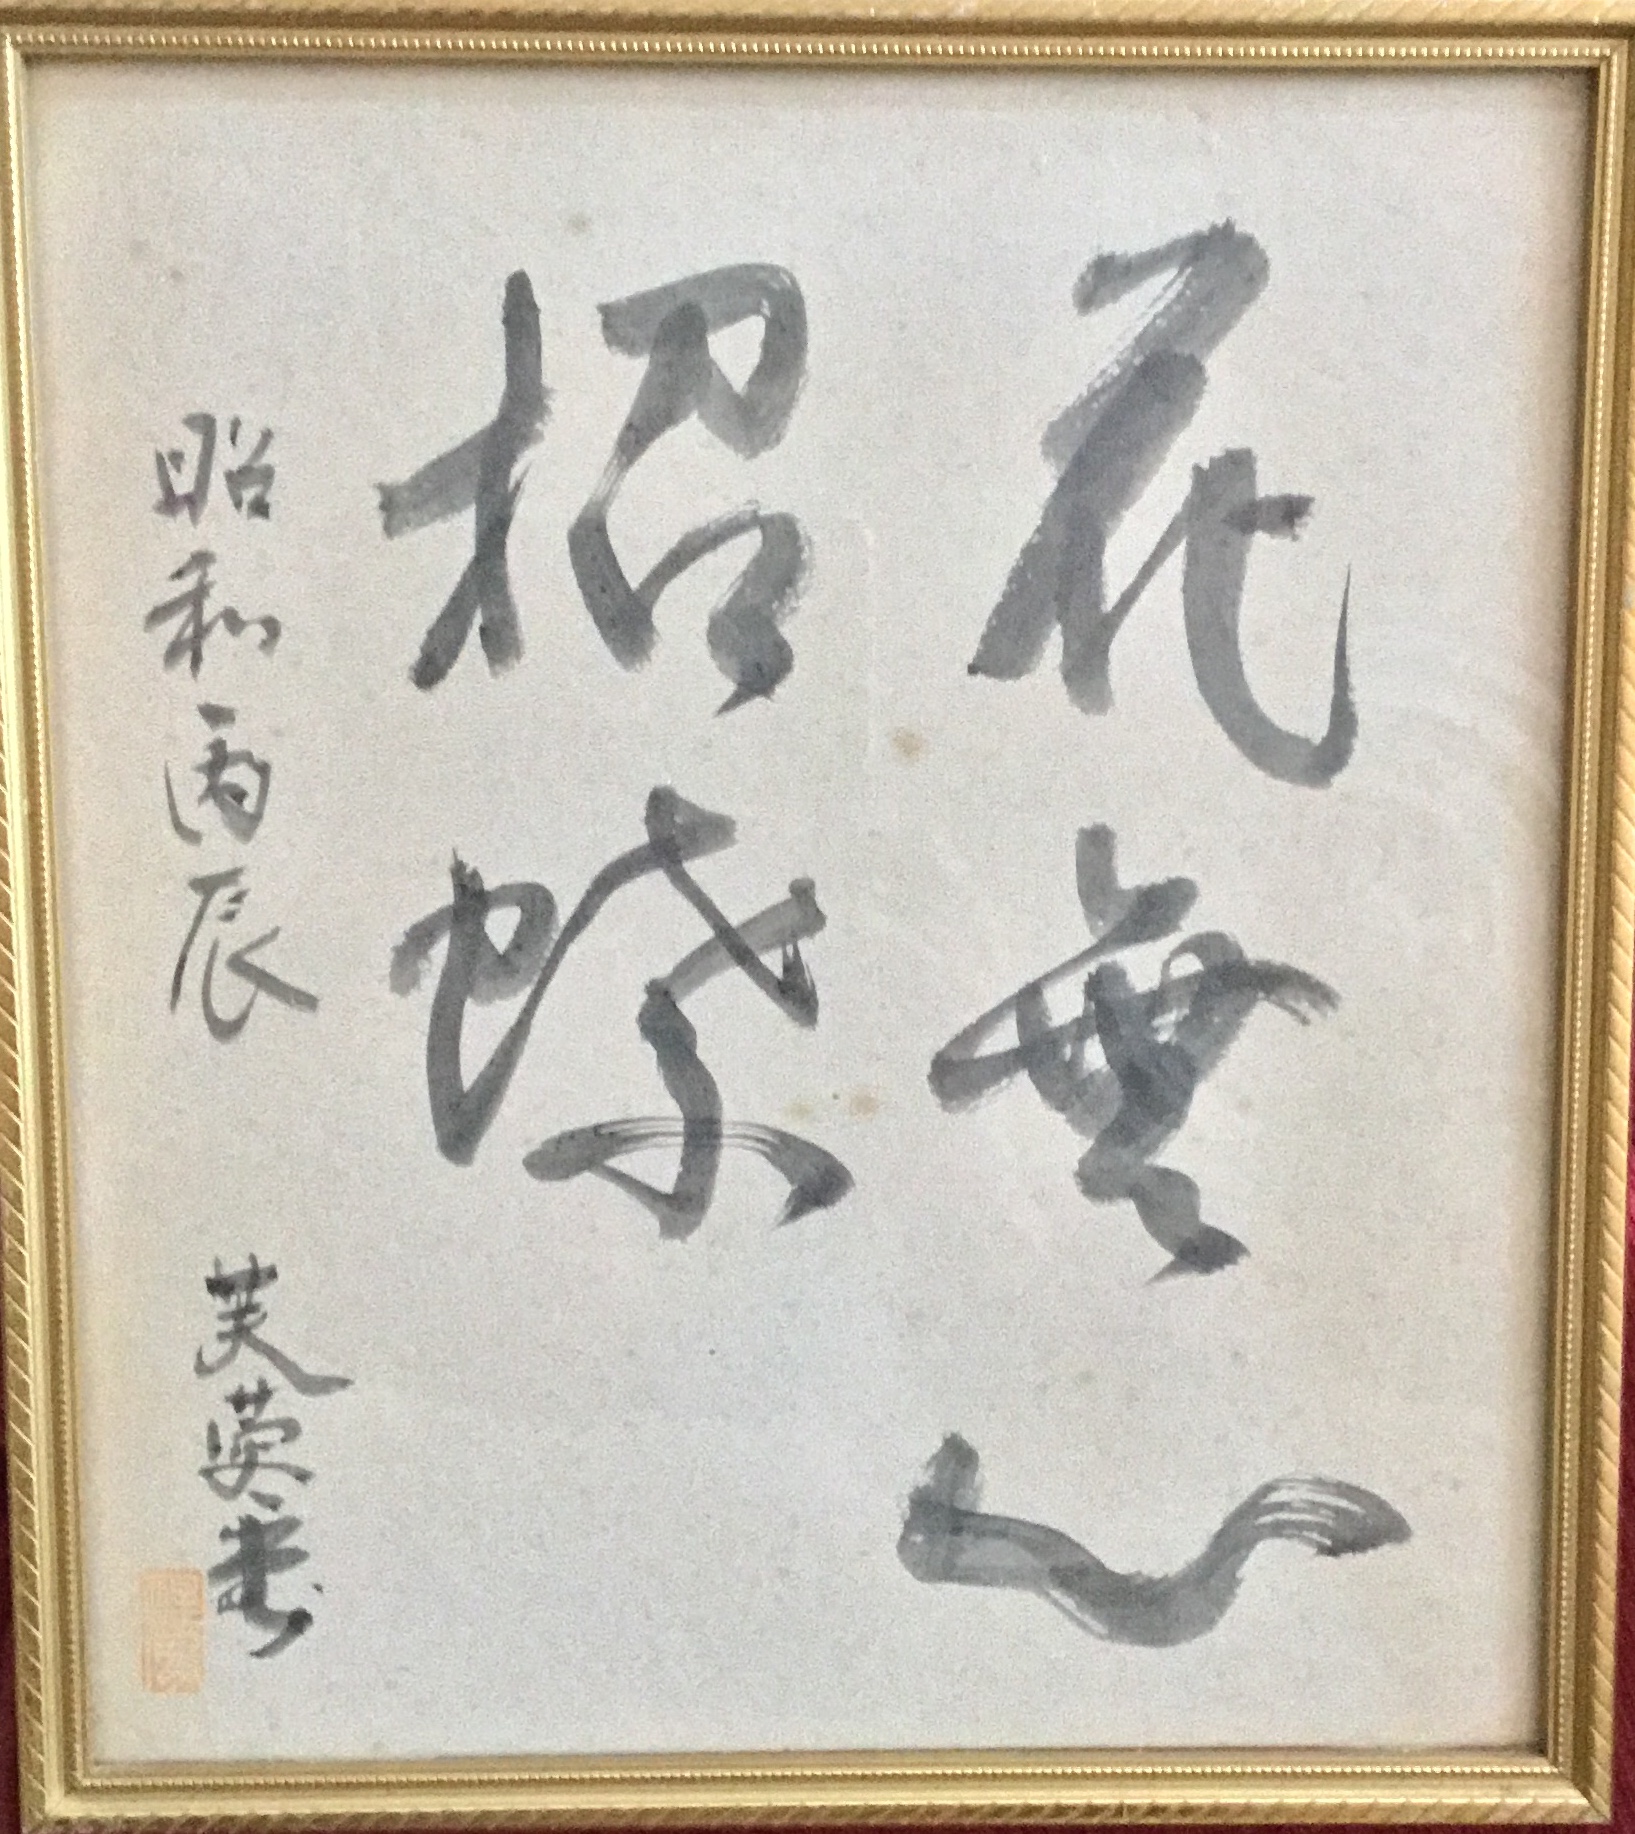 花無心
招蝶
昭和丙辰
芙蓉書